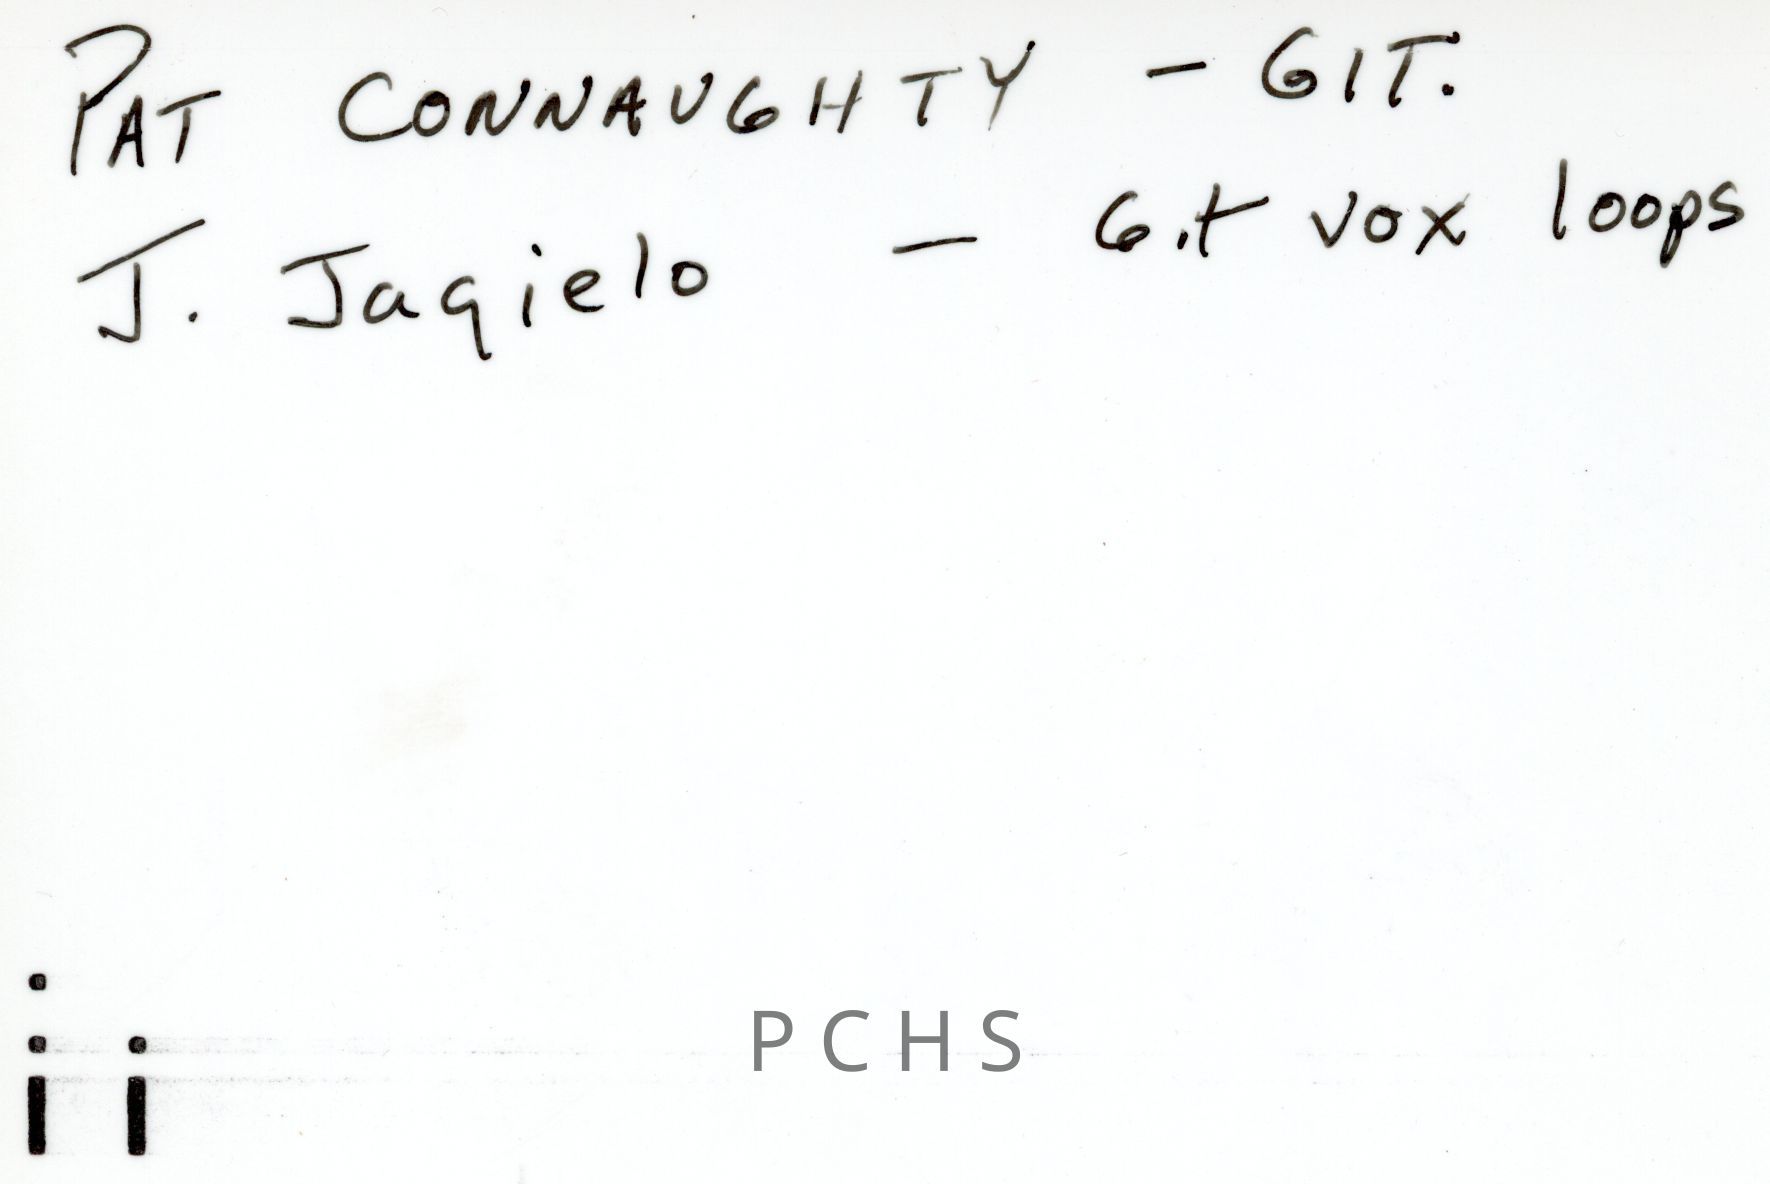 PAT CONNAUGHTY - GIT.
J. Jagielo - Git vox loops
PCHS